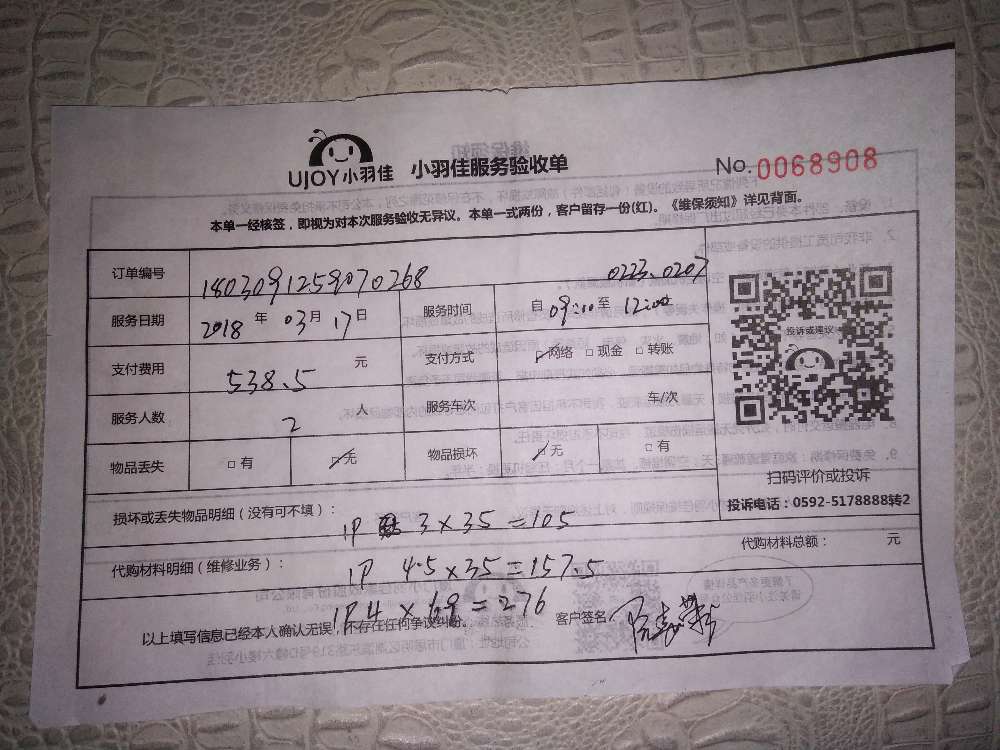 UJOY小羽佳 小羽佳服务验收单 No.0068908
本单一经核签，即视为对本次服务验收无异议。本单一式两份，客户留存一份(红)。《维保须知》详见背面。
订单编号 1803091259070268 0223.0207
服务日期 2018年03月17日 服务时间 自09:00至12:00
支付费用 538.5元 支付方式 ☑网络 □现金 □转账
服务人数 2人 服务车次 车/次
物品丢失 □有 ☑无 物品损坏 ☑无 □有
投诉或建议
扫码评价或投诉
投诉电话：0592-5178888转2
损坏或丢失物品明细（没有可不填）： 1P 3×35=105
代购材料明细（维修业务）： 1P 4.5×35=157.5 代购材料总额： 元
1P4×69=276
以上填写信息已经本人确认无误，不存在任何争议纠纷。 客户签名